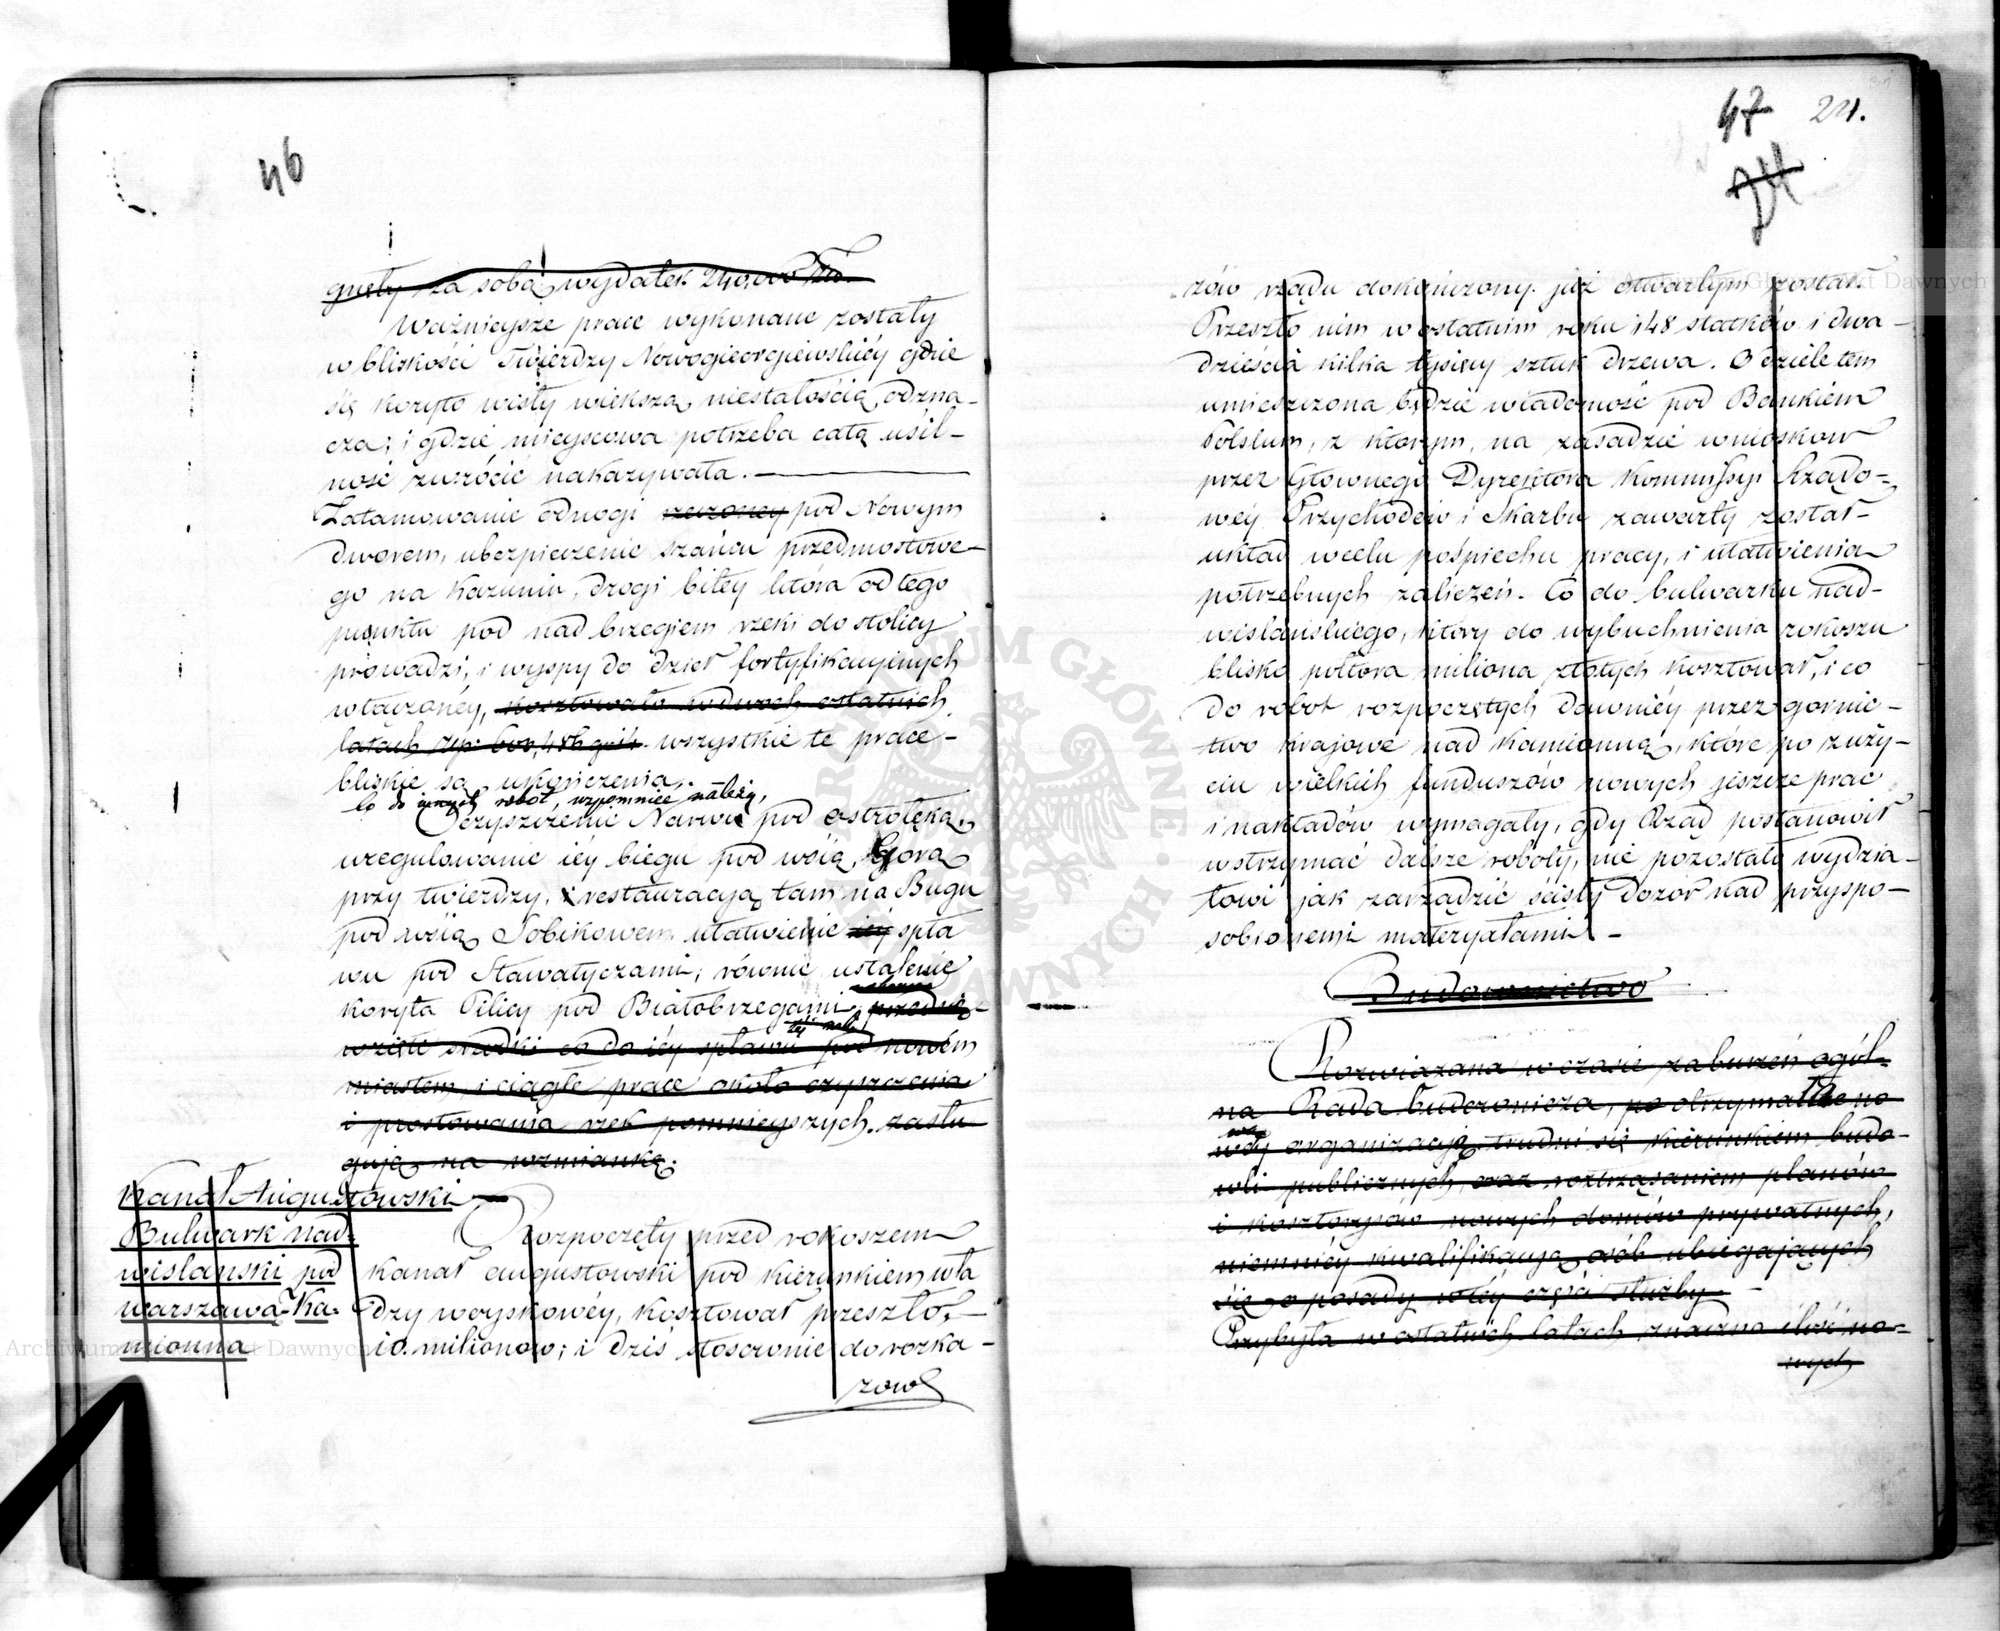 46
gnęły za sobą wydatek 240,000 Złp.
Ważnieysze prace wykonane zostały
w bliskości Twierdzy Nowogieorgiewskiéy gdzie
się koryto wisły większą niestałością odzna-
cza; i gdzie mieyscowa potrzeba całą usil-
ność zwrócić nakazywała. —
Zatamowanie odnogi rzeczoney pod Nowym
dworem, ubezpieczenie szańcu przedmostowe-
go na Kazuniu, drogi bitéy która od tego
punktu pod nad brzegiem rzeki do stolicy
prowadzi, i wyspy do dzieł fortyfikacyinych
włączonéy, kosztowało w dwóch ostatnich
latach złp: wszystkie te prace
bliskie są ukończenia.
Co do innych robót, wspomnieć należy,
Oczyszczenie Narwi pod Ostrołęką,
uregulowanie iéy biegu pod wsią Gora
przy twierdzy, i restauracyą tam na Bugu
pod wsią Sobikowem ułatwienie iéy spła
wu pod Sławatyczami; równie ustalenie
koryta Pilicy pod Białobrzegami, przedsię-
wzięte środki co do iéy spławu pod nowém
miastem, i ciągłe prace około czyszczenia
i prostowania rzek pomnieyszych. zasłu
gują na wzmiankę.
Kanał Augustowski
Bulwark nad-
wislanski pod
warszawą-Ka-
mionna
Rozpoczęty przed rokoszem
Kanał augustowski pod kierunkiem wła
dzy woyskowéy, kosztował przeszło
10. milionow; i dziś stosownie do rozka-
zow
47 24.
24
zów rządu dokończony. już otwartym został.
Przeszło nim w ostatnim roku 148 statków i dwa-
dzieścia kilka tysięcy sztuk drzewa. O dziele tem
umieszczona będzie wiadomość pod Bankiem
Polskim, z którym, na zasadzie wniosków
przez Głownego Dyrektora Kommissyi Rządo-
wéy Przychodów i Skarbu zawarty został
układ w celu pośpiechu pracy, i ułatwienia
potrzebnych zaliczeń. Co do bulwarku nad-
wislańskiego, który do wybuchnienia rokoszu
blisko półtora miliona złotych kosztował, i co
do robot rozpoczętych dawniéy przez gornic-
two krajowe nad Kamionną, które po zuży-
ciu wielkich funduszów nowych jeszcze prac
i nakładów wymagały, gdy Rząd postanowił
wstrzymać dalsze roboty, nie pozostało wydzia-
łowi jak zarządzić ścisły dozór nad przyspo-
sobionemi materyałami. -
Budownictwo
Rozwiązana w czasie zaburzeń ogól-
na Rada budownicza, po otrzymaniu no
wéy organizacyą trudni się kierunkiem budo-
wli publicznych, oraz roztrząsaniem planów
i kosztorysów nowych domów prywatnych,
niemniéy kwalifikacyą osób ubiegających
się o posady w téy części służby. -
Przybyła w ostatnich latach znaczna ilość no-
wych